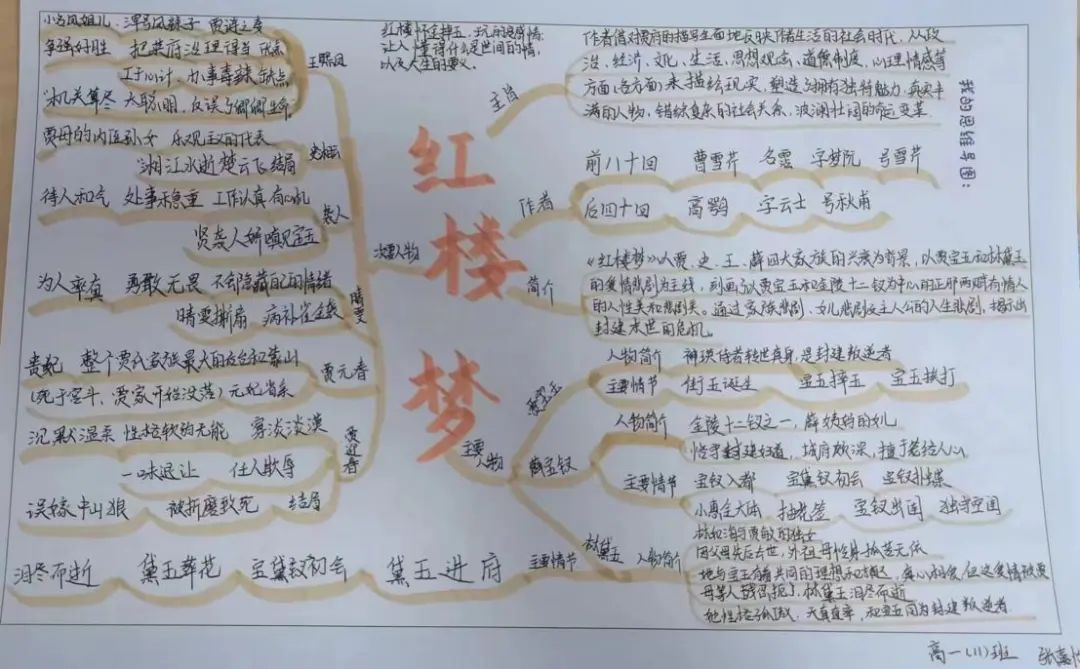 红楼梦
我的思维导图：
主旨
作者借对贾府的描写全面地反映作者生活的社会时代，从政
治、经济、文化、生活、思想观念、道德制度、心理情感等
方面（各方面）来描绘现实，塑造了拥有独特魅力，真实丰
满的人物，错综复杂的社会关系，波澜壮阔的命运变革
作者
前八十回 曹雪芹 名霑 字梦阮 号雪芹
后四十回 高鹗 字云士 号秋甫
简介
《红楼梦》以贾、史、王、薛四大家族的兴衰为背景，以贾宝玉和林黛玉
的爱情悲剧为主线，刻画了以贾宝玉和金陵十二钗为中心的正邪两赋有情人
的人性美和悲剧美。通过家族悲剧、女儿悲剧及主人公的人生悲剧，揭示出
封建末世的危机。
主要人物
贾宝玉
人物简介 神瑛侍者转世真身，是封建叛逆者
主要情节 衔玉诞生 宝玉摔玉 宝玉挨打
薛宝钗
人物简介 金陵十二钗之一，薛姨妈的女儿
恪守封建妇道，城府颇深，擅于笼络人心
主要情节 宝钗入都 宝黛钗初会 宝钗扑蝶
小惠全大体 抽花签 宝钗出闺 独守空闺
林黛玉
人物简介
林如海与贾敏的独女
因父母先后去世，外祖母怜其孤苦无依
她与宝玉有着共同的理想和
林黛玉泪尽而逝
她性格孤傲，天真直率，和宝玉同为封建叛逆者
主要情节
黛玉进府 宝黛钗初会 黛玉葬花 泪尽而逝
次要人物
王熙凤
小名凤姐儿，浑号凤辣子 贾琏之妻
争强好胜 把荣府治理得当 优点
工于心计，办事毒辣 缺点
“机关算尽太聪明，反误了卿卿性命”
史湘云
贾母的内侄孙女 乐观主义的代表
“湘江水逝楚云飞”结局
袭人
待人和气 处事稳重 工作认真 有心机
贤袭人娇嗔见宝玉
晴雯
为人率真 勇敢无畏 不会隐藏自己的情绪
晴雯撕扇 病补雀金裘
贾元春
贵妃 整个贾氏家族最大的后台和靠山
（死于宫斗，贾家开始没落）元妃省亲
贾迎春
沉默温柔 性格软的无能 寡淡淡漠
一味退让 任人欺辱
误嫁中山狼 被折磨致死 结局
让人懂得什么是世间的情，
以及人生的意义
高一（11）班